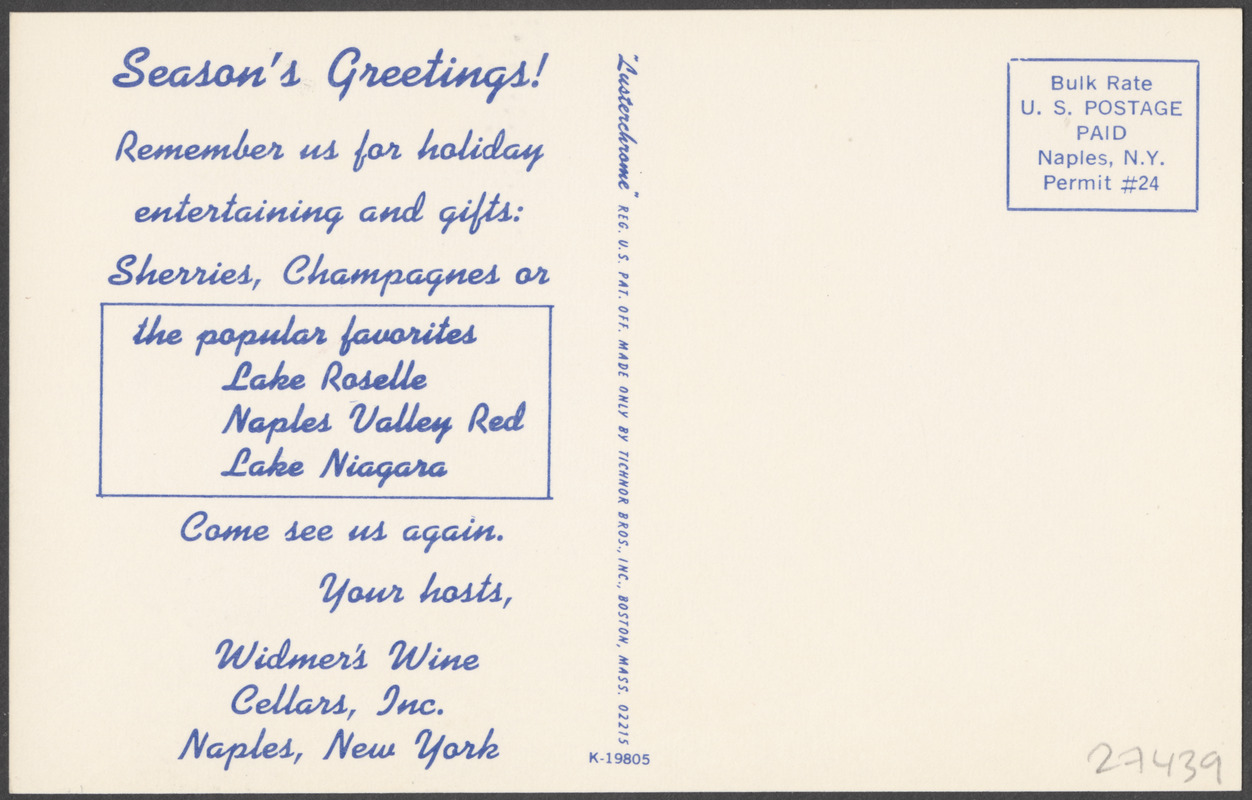 Season's Greetings!
Remember us for holiday
entertaining and gifts:
Sherries, Champagnes or
the popular favorites
Lake Roselle
Naples Valley Red
Lake Niagara
Come see us again.
Your hosts,
Widmer's Wine
Cellars, Inc.
Naples, New York
"Lusterchrome" REG. U.S. PAT. OFF. MADE ONLY BY TICHNOR BROS., INC., BOSTON, MASS. 02215
K-19805
Bulk Rate
U. S. POSTAGE
PAID
Naples, N.Y.
Permit #24
27439